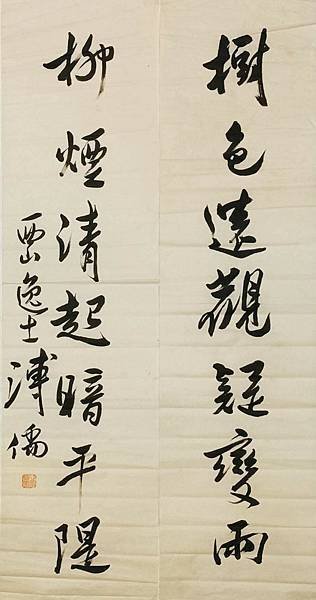 樹色遠觀疑變雨
柳煙清起暗平隄
西山逸士溥儒